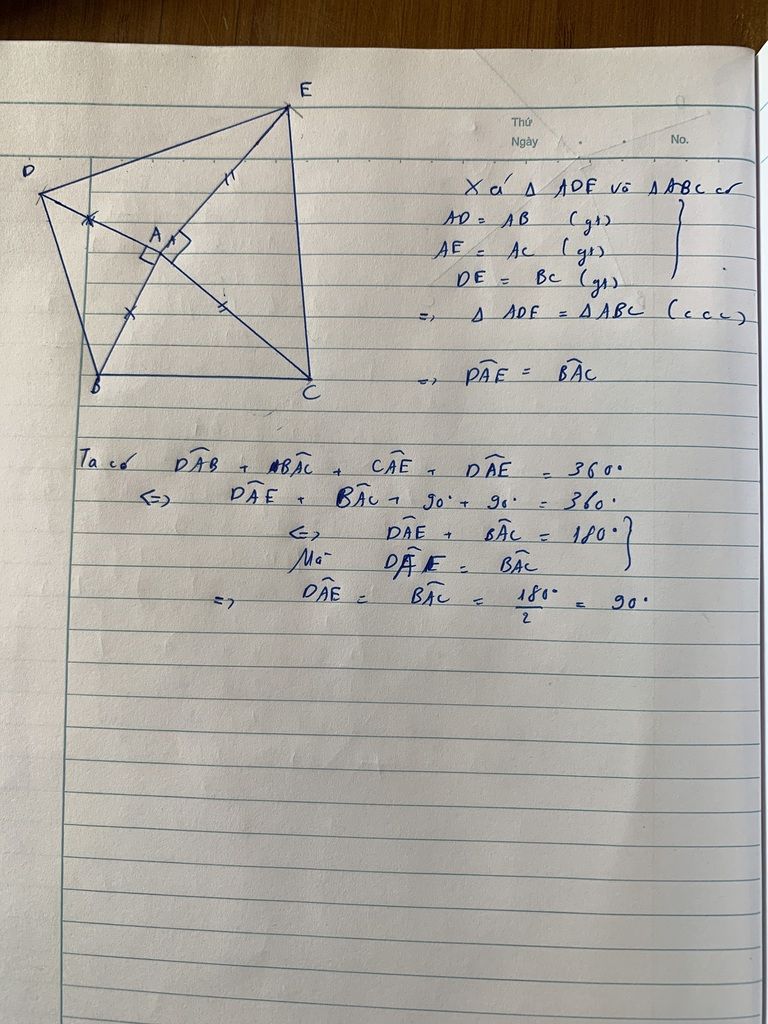 E
Thứ
Ngày
No.
D
A
B
C
Xét Δ ADE và Δ ABC có
AD = AB (gt)
AE = AC (gt)
DE = BC (gt)
=> Δ ADE = Δ ABC (c c c)
=> DÂE = BÂC
Ta có DÂB + BÂC + CÂE + DÂE = 360°
<=> DÂE + BÂC + 90° + 90° = 360°
<=> DÂE + BÂC = 180°
Mà DÂE = BÂC
=> DÂE = BÂC = 180°/2 = 90°